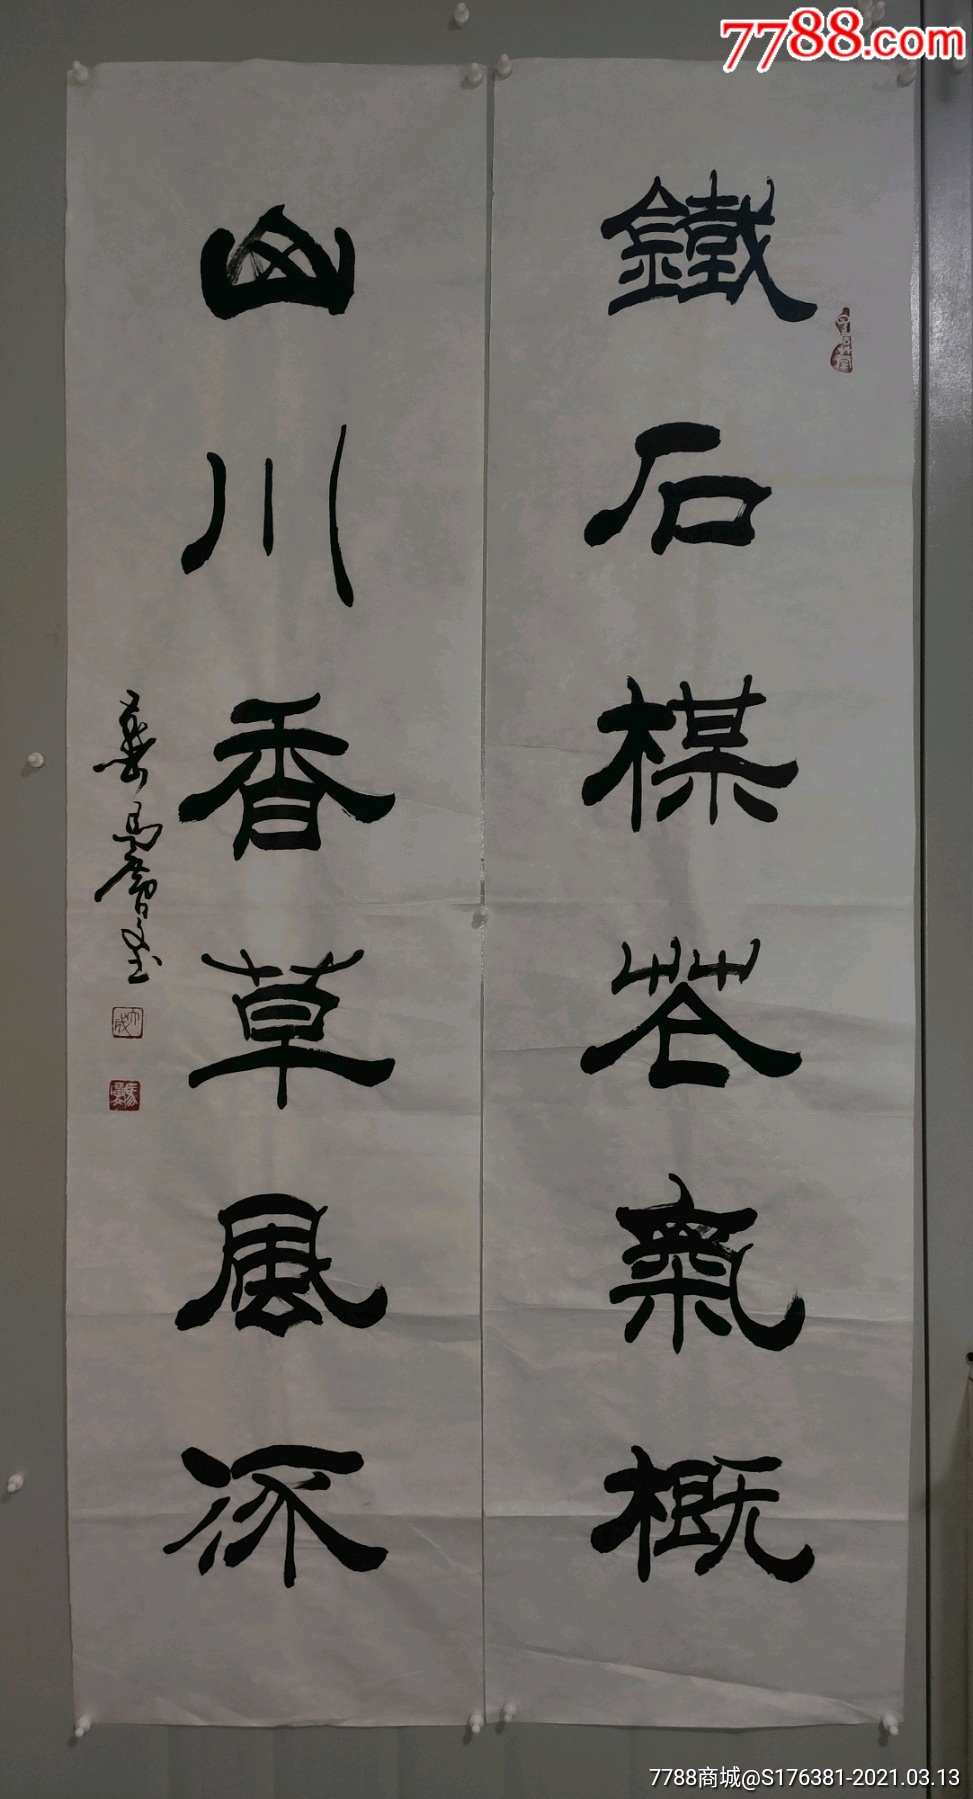 7788.com
鐵石楳花氣概
山川香草風流
7788商城@S176381-2021.03.13